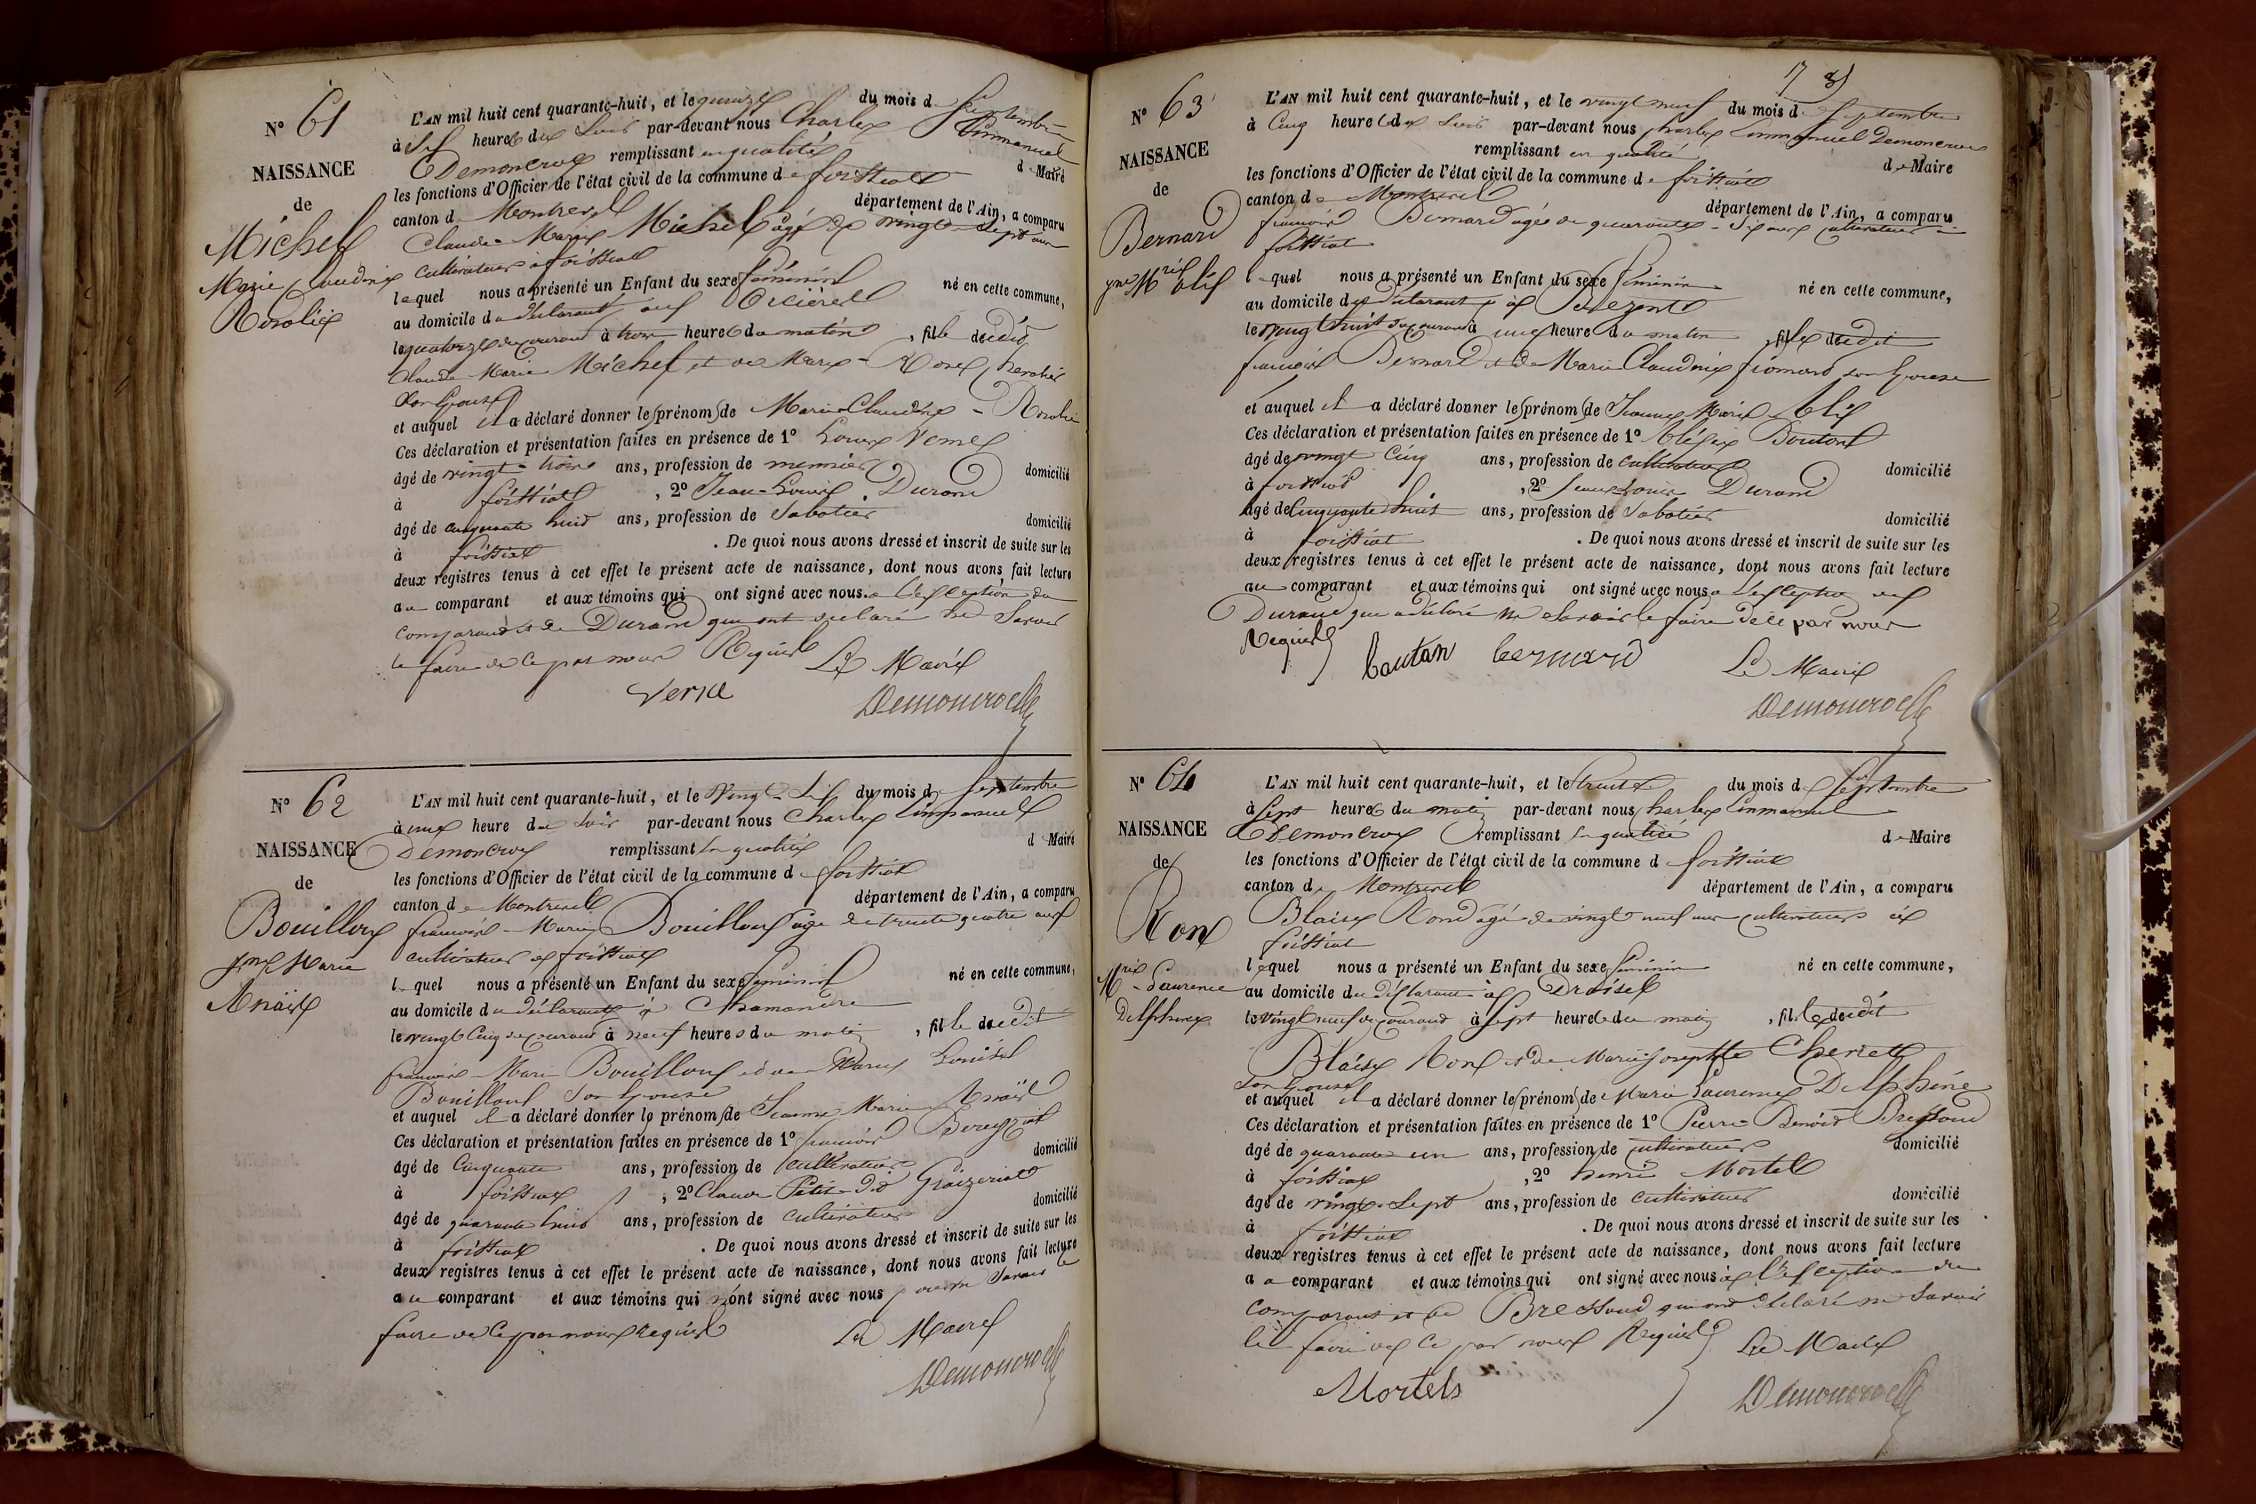 N° 61
NAISSANCE
de
Michel
Marie Claudine
Rosalie
L'AN mil huit cent quarante-huit, et le quinze du mois de Septembre
à Six heures du Soir par-devant nous Charles Emmanuel
Demoncroz remplissant en qualité de Maire
les fonctions d'Officier de l'état civil de la commune de foissiat
canton de Montrevel département de l'Ain, a comparu
Claude-Marie Michel âgé de vingt-sept ans
cultivateur à foissiat
lequel nous a présenté un Enfant du sexe féminin né en cette commune,
au domicile du déclarant
le quatorze du courant à trois heures du matin, fille dudit
Claude Marie Michel et de Marie-
son Epouse
et auquel il a déclaré donner les prénoms de Marie Claudine - Rosalie
Ces déclaration et présentation faites en présence de 1°
âgé de vingt-trois ans, profession de domicilié
à foissiat, 2° Jean-Louis Durand
âgé de cinquante huit ans, profession de Sabotier domicilié
à foissiat. De quoi nous avons dressé et inscrit de suite sur les
deux registres tenus à cet effet le présent acte de naissance, dont nous avons fait lecture
au comparant et aux témoins qui ont signé avec nous à l'exception du
comparant et de Durand qui ont déclaré ne Savoir
le faire de ce par nous Requis Le Maire
Demoncroz
N° 62
NAISSANCE
de
Bouilloux
Jne Marie
Anaïs
L'AN mil huit cent quarante-huit, et le Vingt-Six du mois de Septembre
à une heure du Soir par-devant nous Charles Emmanuel
Demoncroz remplissant en qualité de Maire
les fonctions d'Officier de l'état civil de la commune de foissiat
canton de Montrevel département de l'Ain, a comparu
françois-Marie Bouilloux âgé de trente quatre ans
cultivateur à foissiat
lequel nous a présenté un Enfant du sexe féminin né en cette commune,
au domicile du déclarant à Chamandre
le vingt Cinq du courant à neuf heures du matin, fille dudit
françois-Marie Bouilloux et de Marie Louise
Bouilloux Son Epouse
et auquel il a déclaré donner le prénom de Jeanne Marie Anaïs
Ces déclaration et présentation faites en présence de 1° françois Bereyziat
âgé de Cinquante ans, profession de cultivateur domicilié
à foissiat, 2° Claude Petit-Dit
âgé de quarante huit ans, profession de cultivateur domicilié
à foissiat. De quoi nous avons dressé et inscrit de suite sur les
deux registres tenus à cet effet le présent acte de naissance, dont nous avons fait lecture
au comparant et aux témoins qui n'ont signé avec nous pour ne Savoir le
faire de ce par nous requis Le Maire
Demoncroz
N° 63
NAISSANCE
de
Bernard
Jne Mrie Elés
L'AN mil huit cent quarante-huit, et le vingt neuf du mois de Septembre
à Cinq heures du Soir par-devant nous Charles Emmanuel Demoncroz
remplissant en qualité de Maire
les fonctions d'Officier de l'état civil de la commune de foissiat
canton de Montrevel département de l'Ain, a comparu
françois Bernard âgé de quarante-six ans cultivateur à
foissiat
lequel nous a présenté un Enfant du sexe féminin né en cette commune,
au domicile du déclarant à
le vingt huit du courant à une heure du matin fille dudit
françois Bernard et de Marie Claudine son Epouse
et auquel il a déclaré donner les prénoms de Jeanne Marie
Ces déclaration et présentation faites en présence de 1° Boutan
âgé de vingt Cinq ans, profession de Cultivateur domicilié
à foissiat, 2° Jean Louis Durand
âgé de Cinquante huit ans, profession de Sabotier domicilié
à foissiat. De quoi nous avons dressé et inscrit de suite sur les
deux registres tenus à cet effet le présent acte de naissance, dont nous avons fait lecture
au comparant et aux témoins qui ont signé avec nous à l'exception de
Durand qui a déclaré ne Savoir le faire de ce par nous
Requis
boutan bernard Le Maire
Demoncroz
N° 64
NAISSANCE
de
Rone
Mrie-Laurence
Delphine
L'AN mil huit cent quarante-huit, et le trente du mois de Septembre
à Sept heures du matin par-devant nous Charles Emmanuel
Demoncroz remplissant en qualité de Maire
les fonctions d'Officier de l'état civil de la commune de foissiat
canton de Montrevel département de l'Ain, a comparu
Blaise Rone âgé de vingt neuf ans cultivateur à
foissiat
lequel nous a présenté un Enfant du sexe féminin né en cette commune,
au domicile du déclarant à
le vingt neuf du courant à Sept heures du matin, fille dudit
Blaise Rone et de Marie Josephte
son Epouse
et auquel il a déclaré donner les prénoms de Marie Laurence Delphine
Ces déclaration et présentation faites en présence de 1° Pierre Benoit Bressoud
âgé de quarante un ans, profession de cultivateur domicilié
à foissiat, 2° henri Mortel
âgé de vingt-Sept ans, profession de Cultivateur domicilié
à foissiat. De quoi nous avons dressé et inscrit de suite sur les
deux registres tenus à cet effet le présent acte de naissance, dont nous avons fait lecture
au comparant et aux témoins qui ont signé avec nous à l'exception du
comparant et de Bressoud qui ont déclaré ne Savoir
le faire de ce par nous Requis Le Maire
Mortels Demoncroz